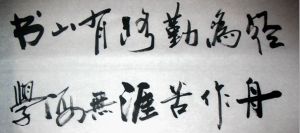 书山有路勤為径
學海無涯苦作舟